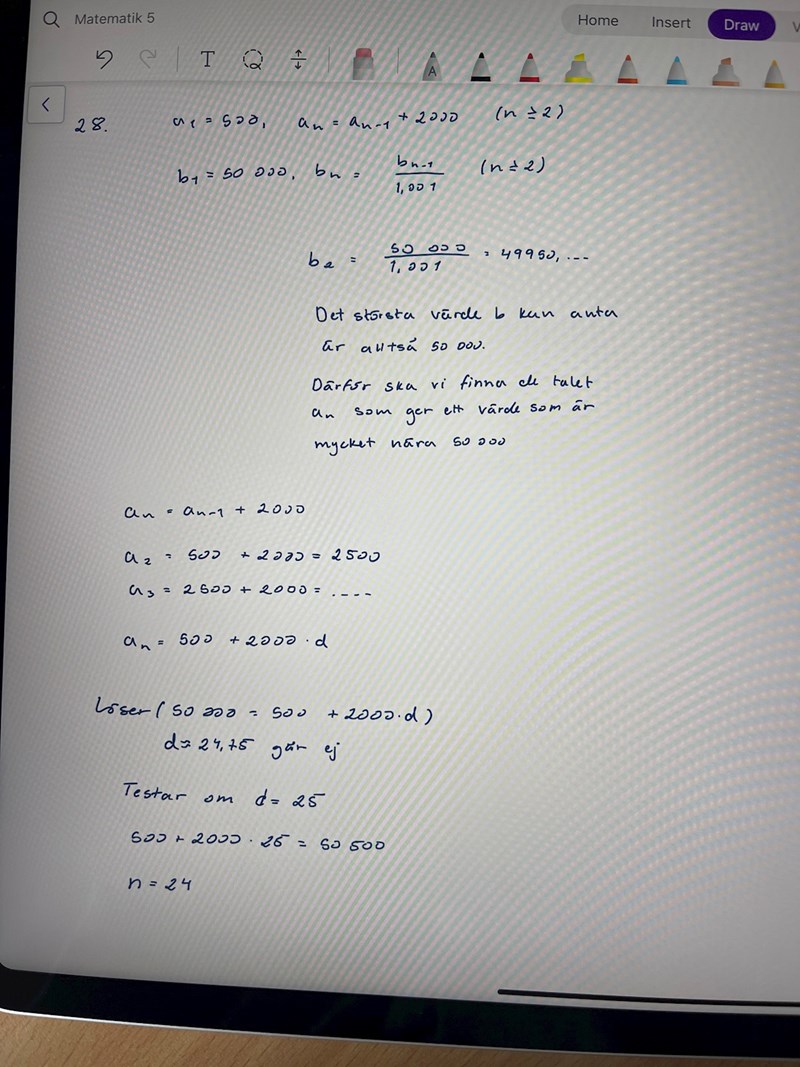 Matematik 5
Home Insert Draw
T
A
28. a₁ = 500, aₙ = aₙ₋₁ + 2000 (n ≥ 2)
b₁ = 50 000, bₙ = bₙ₋₁ / 1,001 (n ≥ 2)
b₂ = 50 000 / 1,001 = 49950, ...
Det största värde b kan anta
är alltså 50 000.
Därför ska vi finna de talet
an som ger ett värde som är
mycket nära 50 000
aₙ = aₙ₋₁ + 2000
a₂ = 500 + 2000 = 2500
a₃ = 2500 + 2000 = ....
aₙ = 500 + 2000 · d
Löser (50 000 = 500 + 2000·d)
d≈ 24,75 går ej
Testar om d = 25
500 + 2000 · 25 = 50 500
n = 24